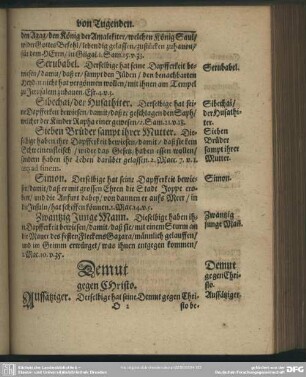 von Tugenden.
den Agag, den König der Amalekiter, welchen König Saul,
wider Gottes Befehl, lebendig gelassen, zustücken zuhawen,
für dem HErrn, in Gilgal. 1. Sam. 15. v. 33.
Serubabel. Derselbige hat seine Dapfferkeit bewie-
sen, damit, daß er, sampt den Jüden, den benachbarten
Heyden nicht hat vergönnen wollen, mit ihnen am Tempel
zu Jerusalem zubawen. Esr. 4. v. 3.
Serubabel.
Sibechai, der Husathiter. Derselbige hat sei-
ne Dapfferkeit bewiesen, damit, daß er geschlagen den Saph,
welcher der Kinder Rapha einer gewesen. 2. Sam. 21. v. 18.
Sibechai,
der Husathi-
ter.
Sieben Brüder sampt ihrer Mutter. Diesel-
bige haben ihre Dapfferkeit bewiesen, damit, daß sie kein
Schweinenfleisch, wider das Gesetz, haben essen wollen,
sondern haben ihr Leben darüber gelassen. 2. Macc. 7. v. 1.
Sieben
Brüder
sampt ihrer
Mutter.
Simon. Derselbige hat seine Dapfferkeit bewie-
sen, damit, daß er mit grossen Ehren die Stadt Joppe ero-
bert, und die Anfurt dabey, von dannen er auffs Meer, in
die Insulen, hat schiffen können. 1. Macc. 14. v. 5.
Simon.
Zwantzig Junge Mann. Dieselbige haben ih-
re Dapfferkeit bewiesen, damit, daß sie, mit einem Sturm an
die Mauer des festen Fleckens Gazara, männlich gelauffen,
und im Grimm erwürget, was ihnen entgegen kommen.
2. Mac. 10. v. 35.
Zwantzig
junge Mañ.
Demut
gegen CHristo.
Demut
gegen Chri-
sto.
Aussätziger. Derselbige hat seine Demut gegen Chri-
Aussätziger.
O 2
sto be-